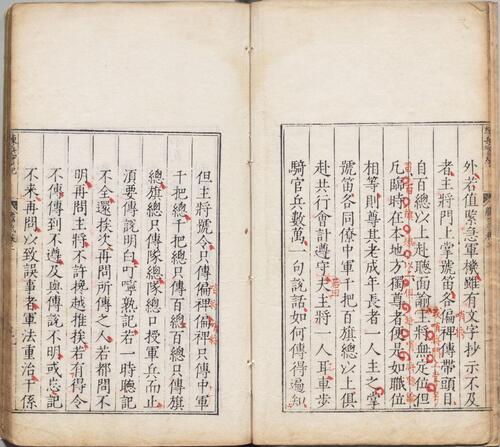 外若值緊急軍機雖有文字抄示不及
者主將門上掌號笛各偏裨傳帶頭目
自百總以上赴聽面諭主將無定位但
凡臨時在本地方獨尊者便是如職位
相等則尊其老成年長者一人主之掌
號笛各同僚中軍千把百旗總以上俱
赴共行會計遵守夫主將一人耳車步
騎官兵數萬一句說話如何傳得遍知
但主將號令只傳偏裨偏裨只傳中軍
千把總千把總只傳百總百總只傳旗
總旗總只傳隊總隊總口授軍兵而止
須要傳說明白叮嚀熟記若一時聽記
不全還挨次再問所傳之人若都問不
明再問主將不許攙越推挨若有得令
不傳傳到不遵及與傳說不明或忘記
不來再問以致誤事者軍法重治干係